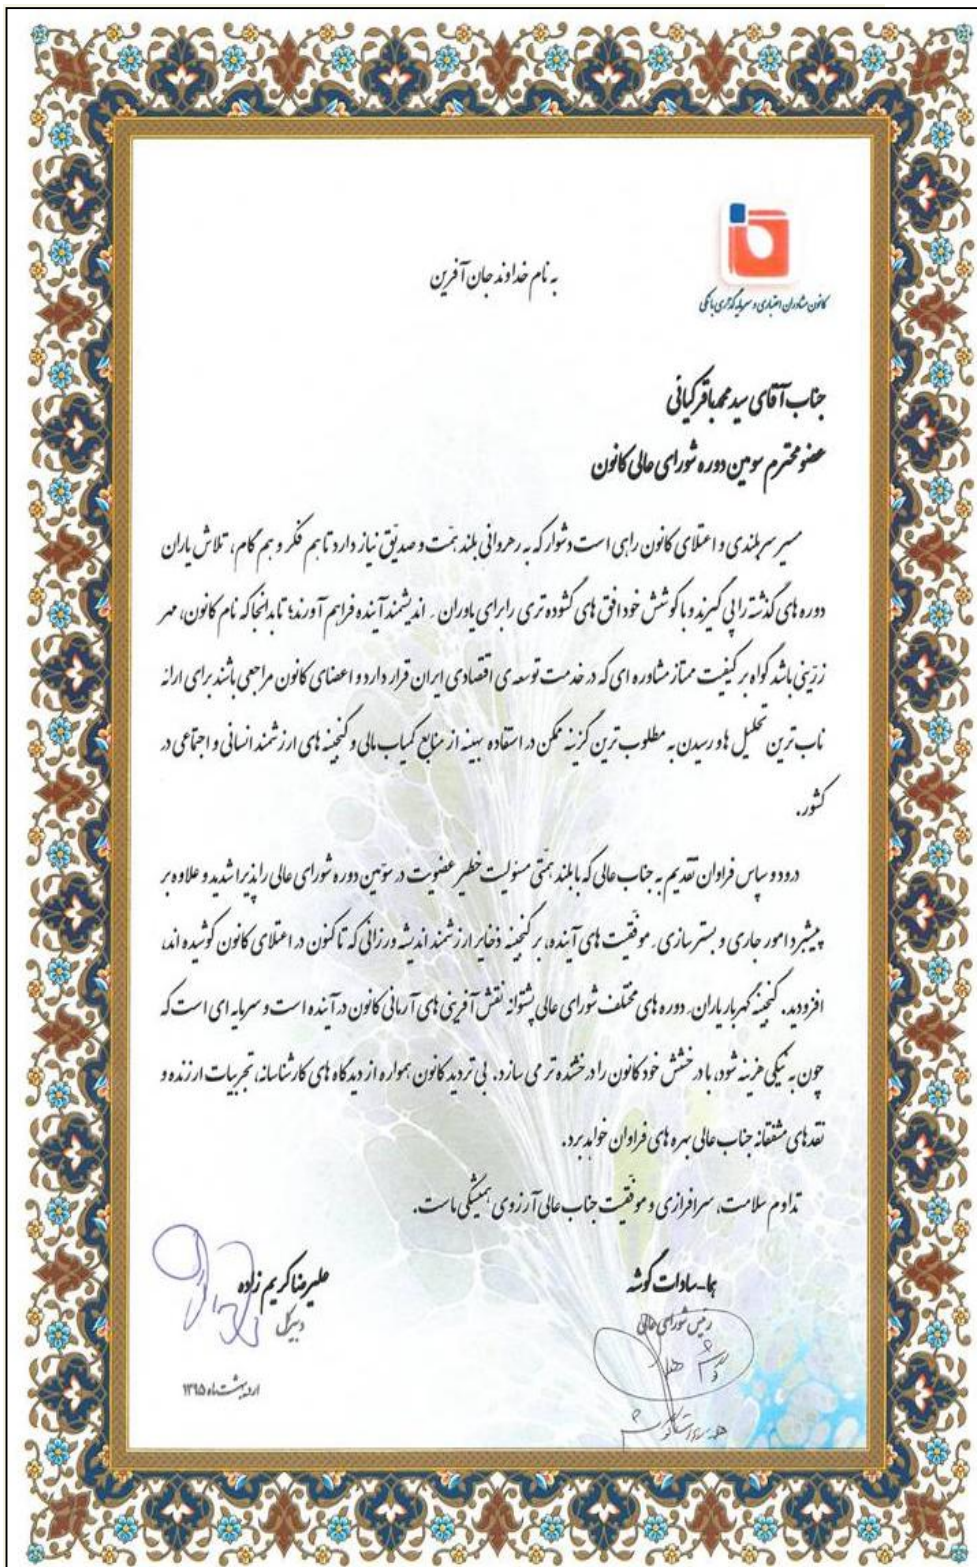 به نام خداوند جان آفرین
کانون مشاوران اعتباری و سرمایه گذاری بانکی
جناب آقای سید محمد باقر کیانی
عضو محترم سومین دوره شورای عالی کانون
مسیر سربلندی و اعتلای کانون راهی است دشوار که به رهروانی بلند همّت و صدیق نیاز دارد تا هم فکر و هم گام، تلاش یاران
دوره های گذشته را پی گیرند و با کوشش خود افق های گشوده تری را برای یاوران اندیشمند آینده فراهم آورند؛ تا بدانجا که نام کانون، مهر
زرّینی باشد گواه بر کیفیت ممتاز مشاوره ای که در خدمت توسعه ی اقتصادی ایران قرار دارد و اعضای کانون مراجعی باشند برای ارائه
ناب ترین تحلیل ها و رسیدن به مطلوب ترین گزینه ممکن در استفاده بهینه از منابع کمیاب مالی و گنجینه های ارزشمند انسانی و اجتماعی در
کشور.
درود و سپاس فراوان تقدیم به جناب عالی که با بلند همّتی مسئولیت خطیر عضویت در سوّمین دوره شورای عالی را پذیرا شدید و علاوه بر
پیشبرد امور جاری و بسترسازی موفّقیت های آینده، بر گنجینه ذخایر ارزشمند اندیشه ورزانی که تاکنون در اعتلای کانون کوشیده اند،
افزودید. گنجینه گهربار یاران دوره های مختلف شورای عالی پشتوانه نقش آفرینی های آرمانی کانون در آینده است و سرمایه ای است که
چون به نیکی هزینه شود، با درخشش خود کانون را درخشنده تر می سازد. بی تردید کانون همواره از دیدگاه های کارشناسانه، تجربیات ارزنده و
نقدهای مشفقانه جناب عالی بهره های فراوان خواهد برد.
تداوم سلامت، سرافرازی و موفّقیت جناب عالی آرزوی همیشگی ماست.
هما-سادات گوشه
رئیس شورای عالی
علیرضا کریم زاده
دبیرکل
اردیبهشت ماه ۱۳۹۵